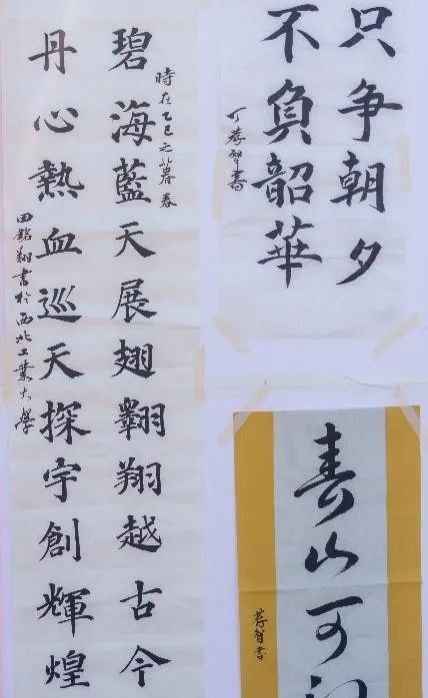 只争朝夕
不負韶華
碧海藍天展翅翱翔越古今
時在乙巳之暮春
丹心熱血巡天探宇創輝煌
田銘翔書於西北工業大學
山可